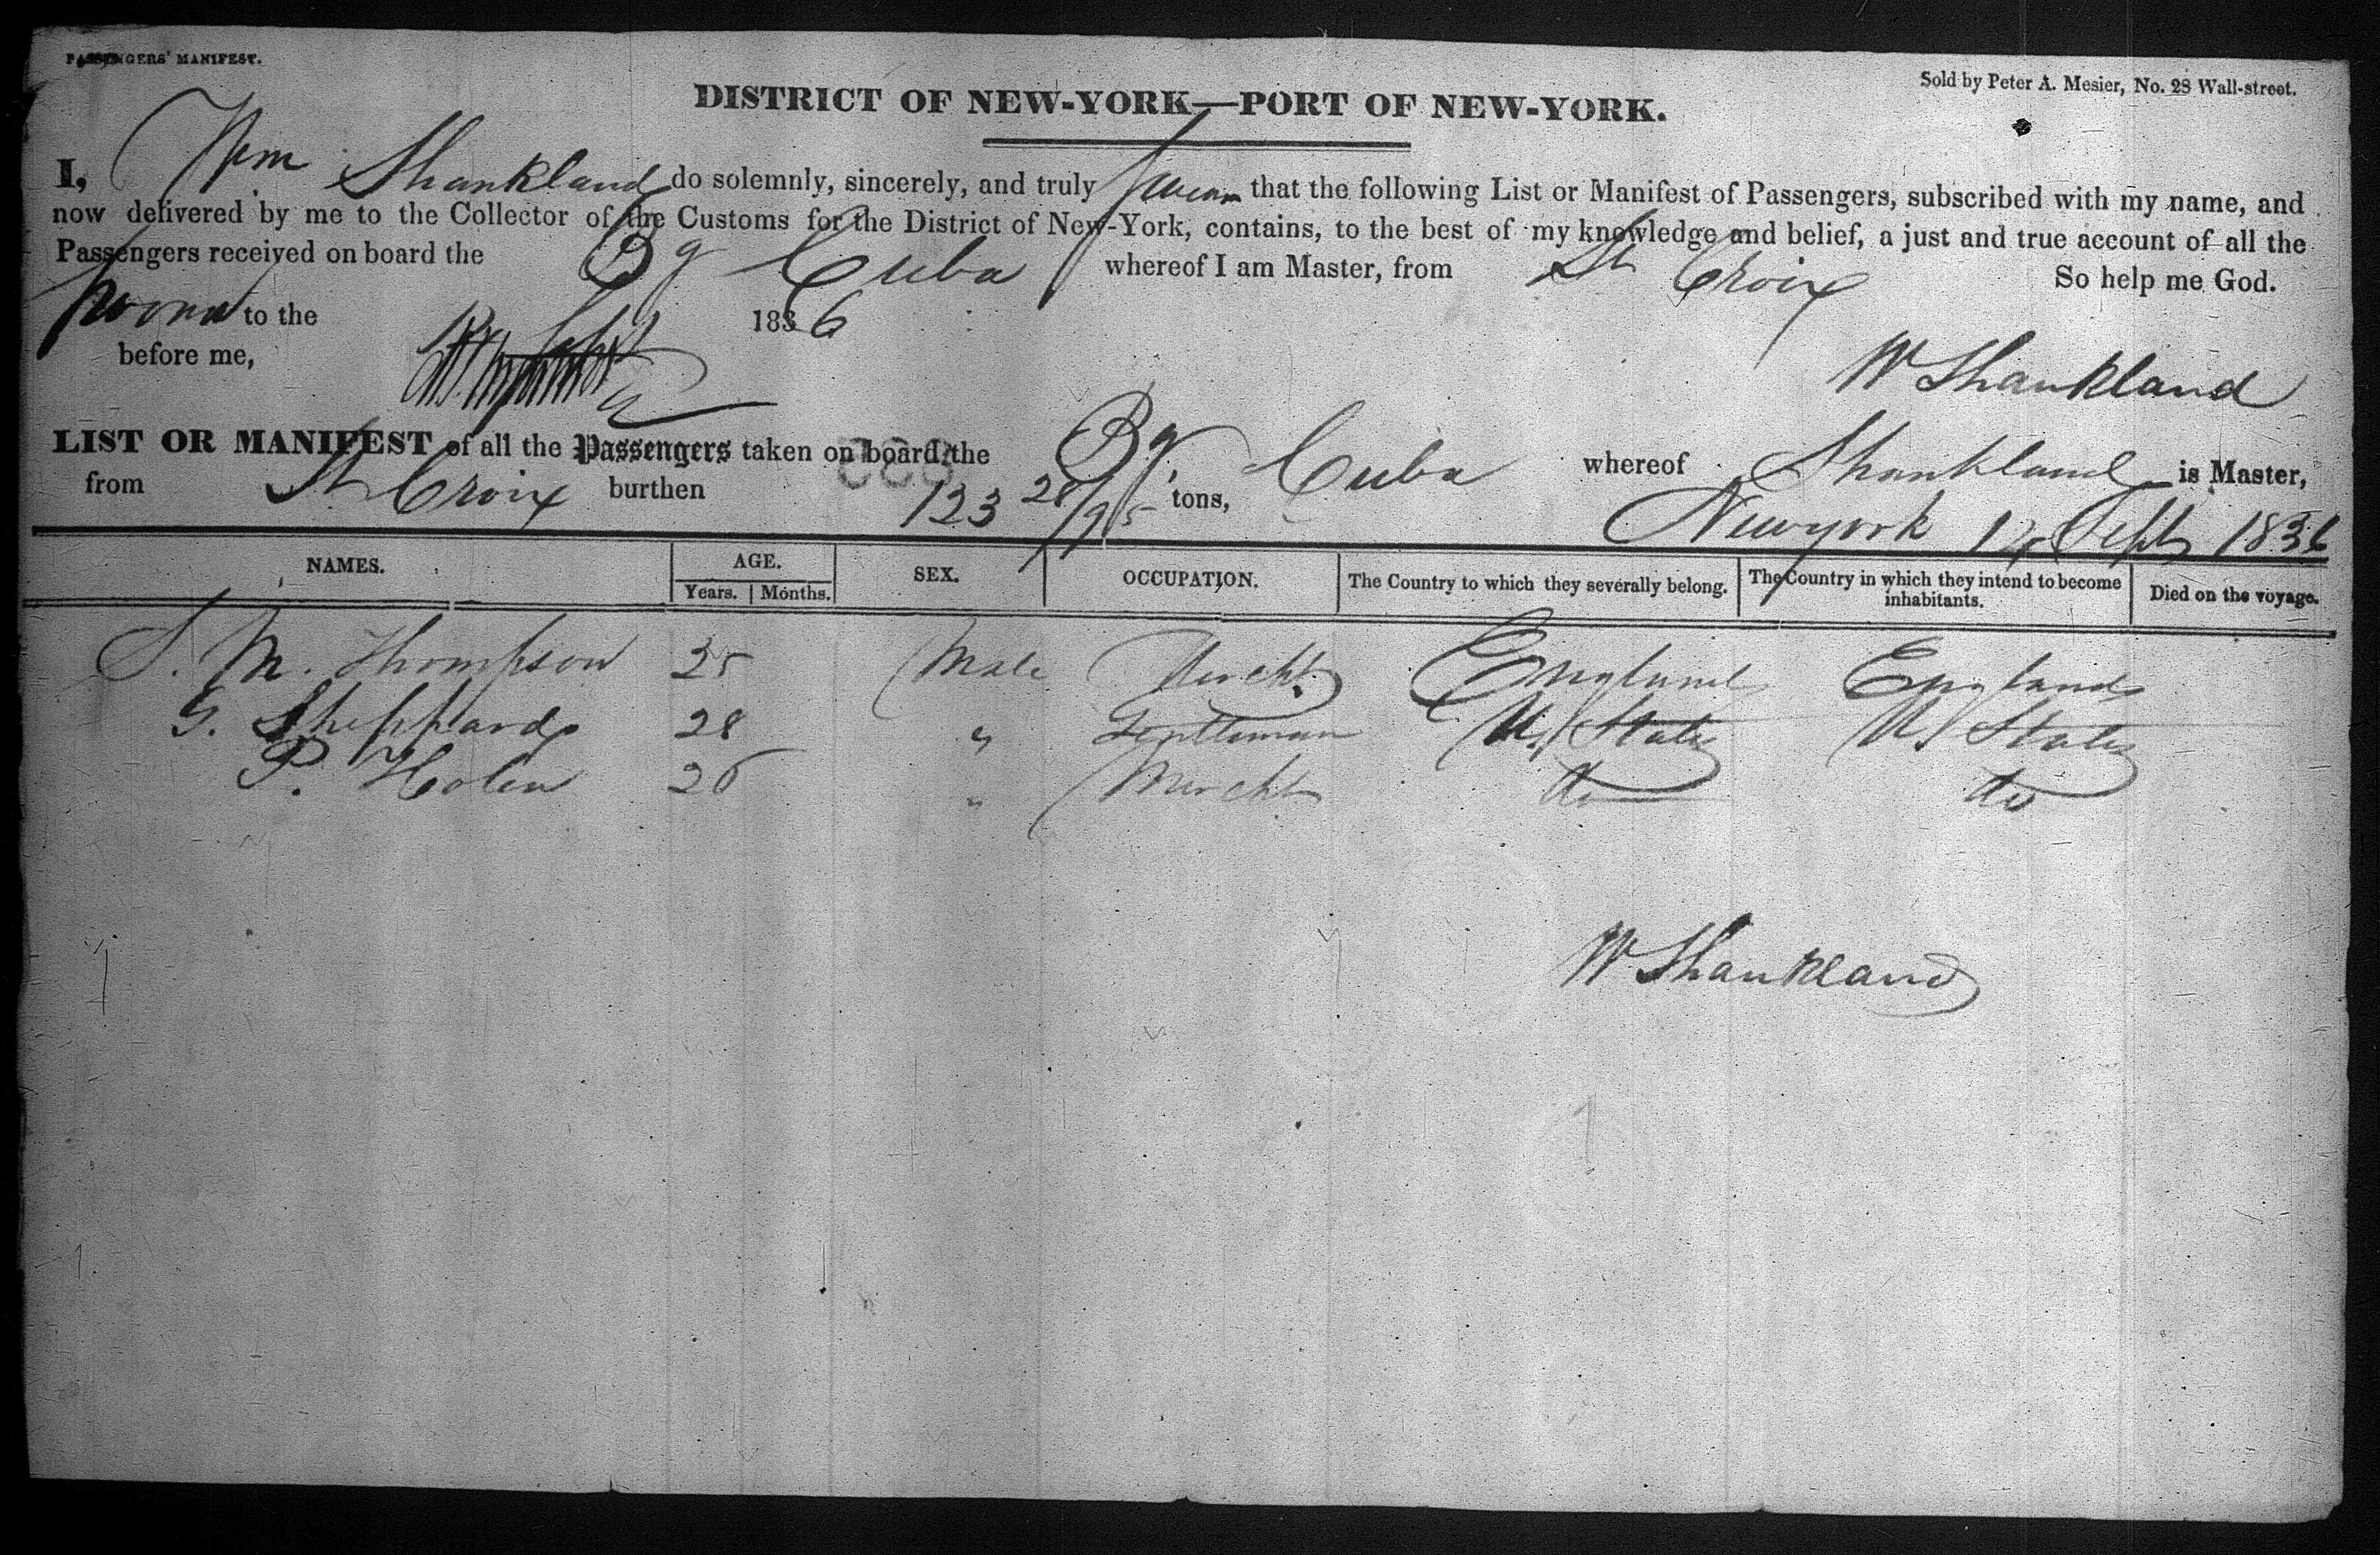 PASSENGERS' MANIFEST.
Sold by Peter A. Mesier, No. 28 Wall-street.
DISTRICT OF NEW-YORK—PORT OF NEW-YORK.
I, Wm Shankland do solemnly, sincerely, and truly Swear that the following List or Manifest of Passengers, subscribed with my name, and
now delivered by me to the Collector of the Customs for the District of New-York, contains, to the best of my knowledge and belief, a just and true account of all the
Passengers received on board the Bg Cuba whereof I am Master, from St Croix
So help me God.
Sworn to the Sept 1836
before me,
W Shankland
LIST OR MANIFEST of all the Passengers taken on board the Bg Cuba whereof Shankland is Master,
from St Croix burthen 123 28/95 tons,
Newyork 14 Sept 1836
NAMES. AGE. SEX. OCCUPATION. The Country to which they severally belong. The Country in which they intend to become inhabitants. Died on the voyage.
Years. Months.
S. M. Thompson 25 Male Mercht England England
G. Sheppard 28 " Gentleman U. States U. States
P. Holen 26 " Mercht do do
W Shankland